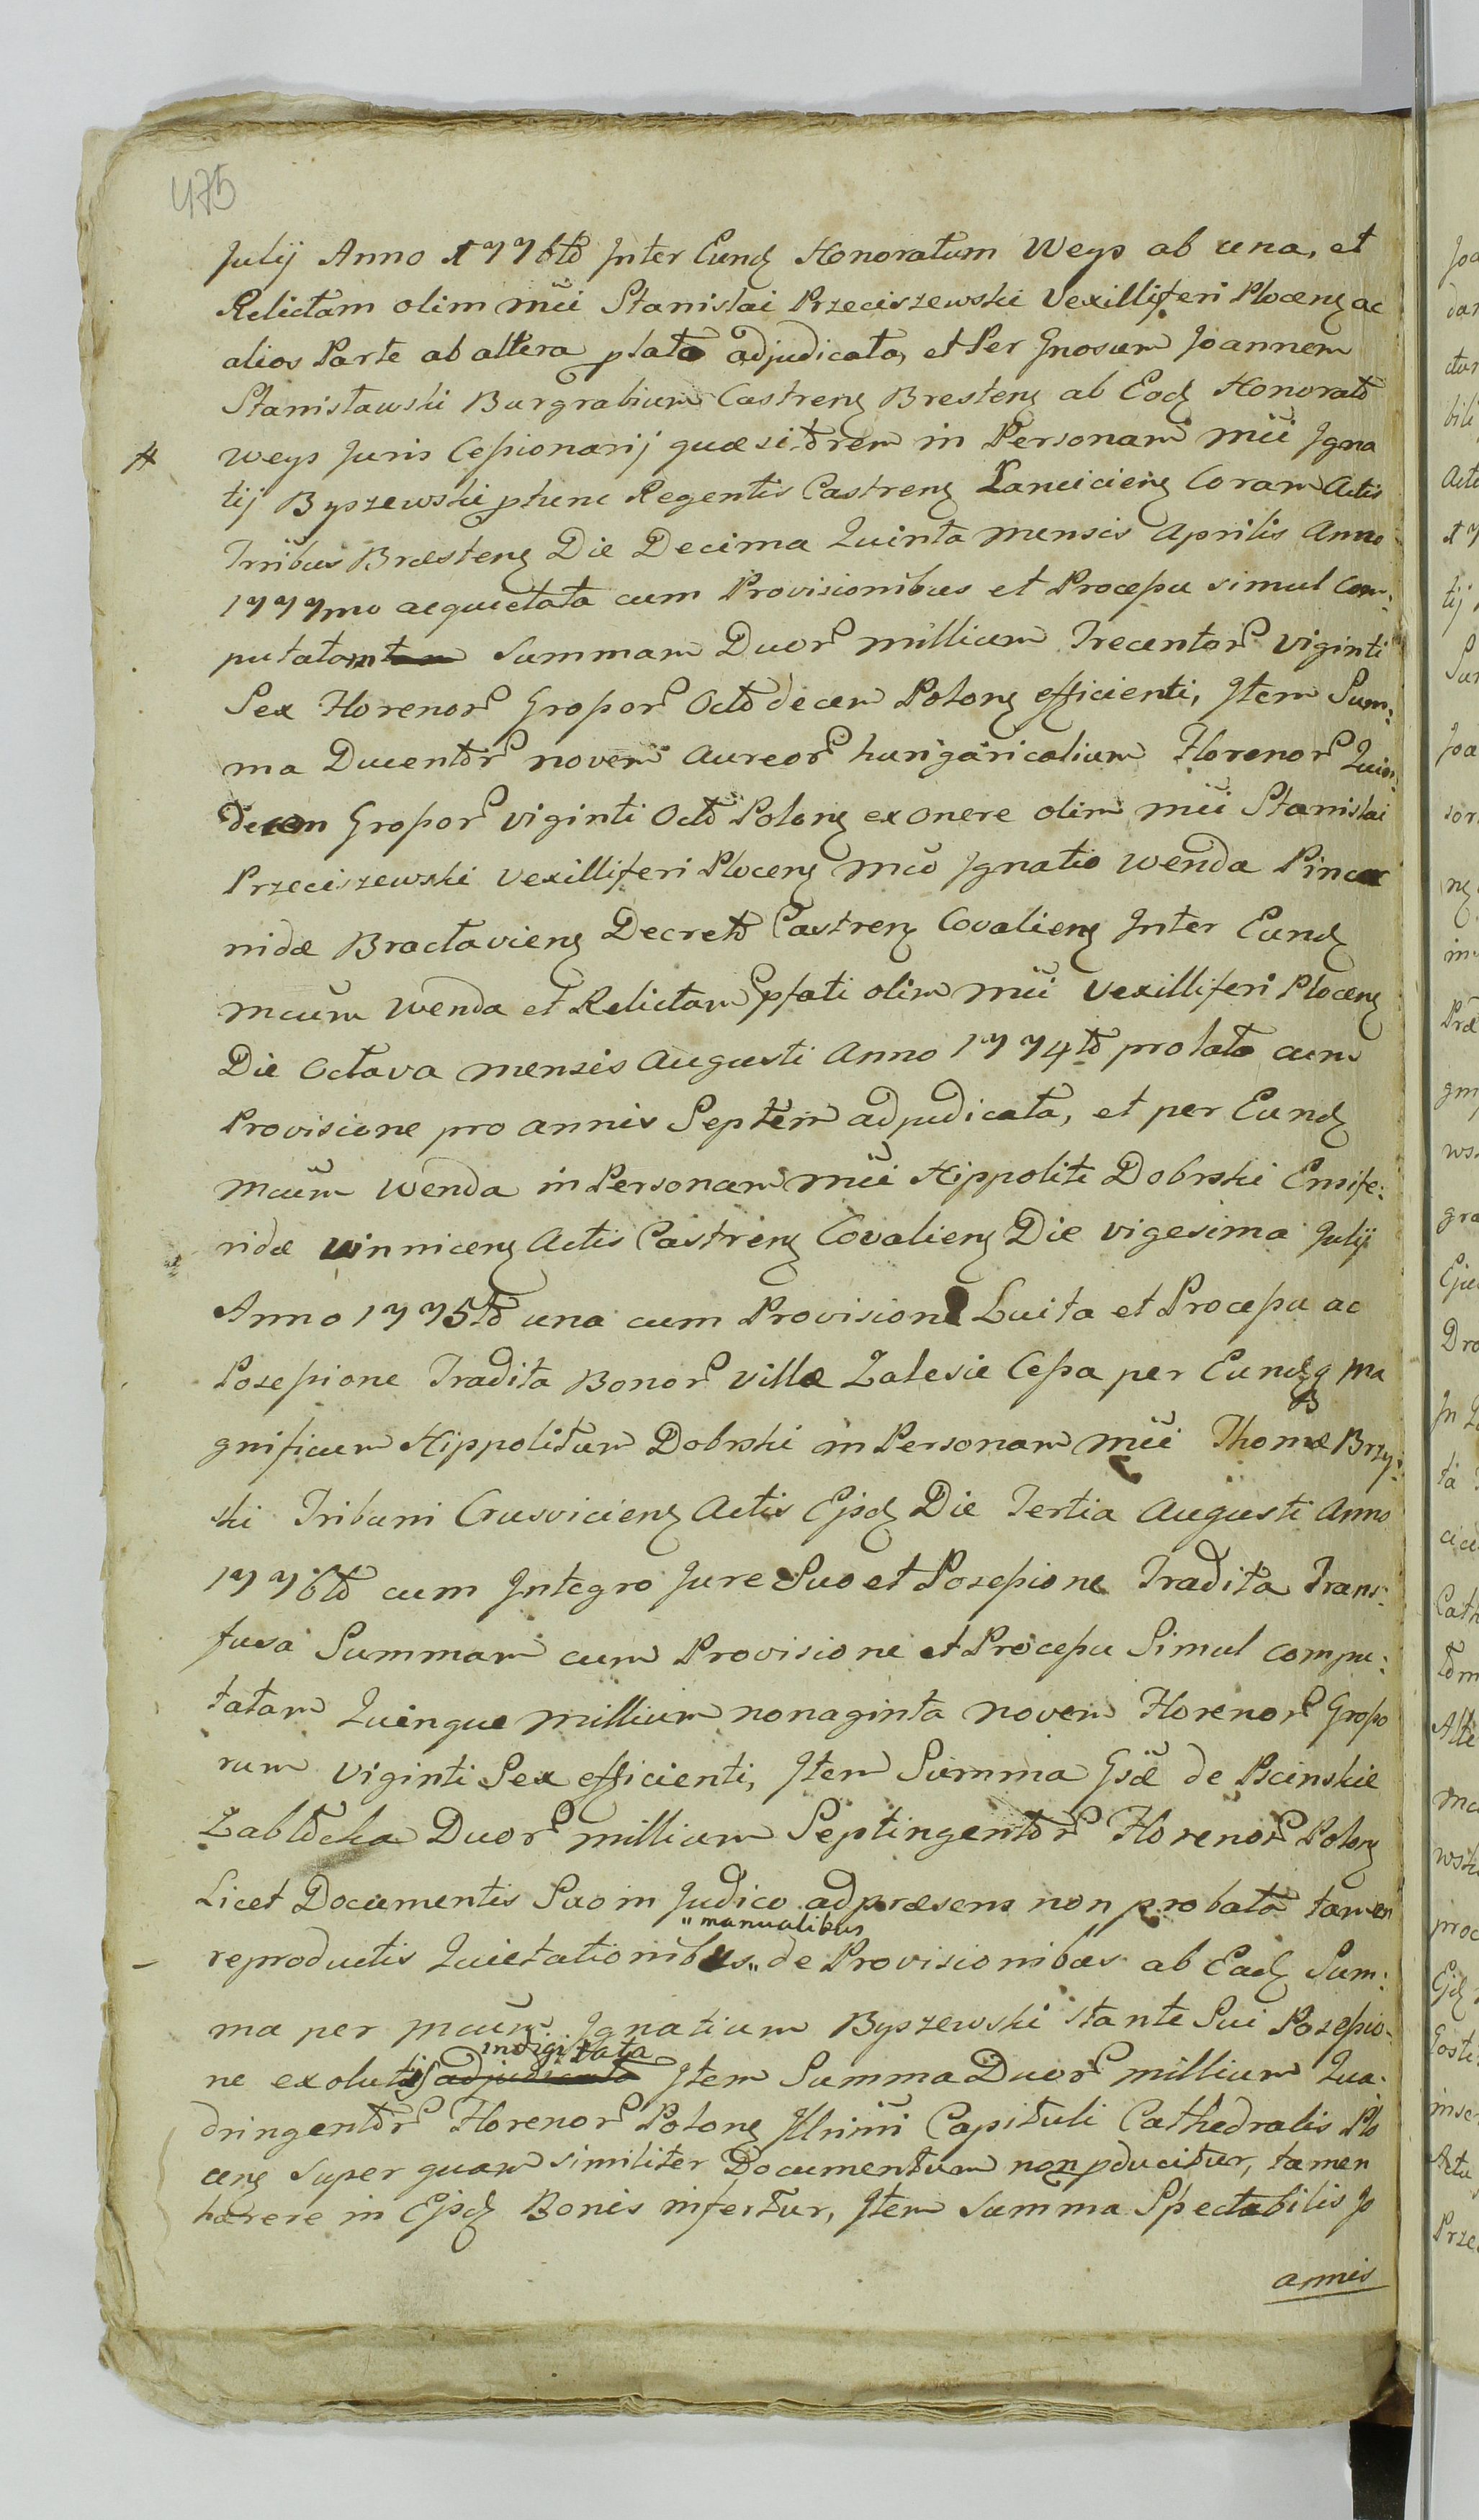 475
Julij Anno 1776to Inter Eund Honoratum Weys ab una, et
Relictam olim Mci Stanislai Przeciszewski Vexilliferi Plocens ac
alios Parte ab altera plata adjudicata, et Per Gnosum Joannem
Stanisławski Burgrabium Castrens Brestens ab Eod Honorato
Weys Juris Cessionarij quæsitorem in Personam Mci Igna
tij Byszewski phunc Regentis Castrens Lancieiens Coram Actis
Trribus Bræstens Die Decima Quinta Mensis Aprilis Anno
1777mo acquietata cum Provisionibus et Processu simul Com:
putatam Summam Duor Millium Trecentor Viginti
Sex Florenor Grossor Octodecem Polon efficienti, Item Sum:
ma Ducentor novem Aureor hungaricalium Florenor Quin:
decem Grossor Viginti Octo Polon ex onere olim Mci Stanislai
Przeciszewski Vexilliferi Plocens Mco Ignatio Wenda Pincer
nidæ Bractaviens Decreto Castrens Covaliens Inter Eund
Mcum Wenda et Relictam pfati olim Mci Vexilliferi Plocens
Die Octava Mensis Augusti Anno 1774to prolato cum
Provisione pro annis Septem adjudicata, et per Eund
Mcum Wenda in Personam Mci Hippoliti Dobrski Ensife:
ridæ Winnicens Actis Castrens Covaliens Die Vigesima Julij
Anno 1775to una cum Provisione Luita et Processu ac
Possessione Tradita Bonor Villæ Zalesie Cessa per Eundq Ma
gnificum Hippolitum Dobrski in Personam Mci Thomæ Brzy:
ski Tribuni Crusviciens Actis Ejsd Die Tertia Augusti Anno
1776to cum Integro Jure Suo et Possessione Tradita Trans:
fusa Summam cum Provisione et Processu Simul compu:
tatam Quinque Millium nonaginta novem Florenor Grosso
rum Viginti Sex efficienti, Item Summa Gsæ de Pscinskie
Zabłocka Duor Millium Septingentor Florenor Polon
Licet Documentis Suo in Judico ad præsens non probata tamen
"manualibus
reproductis Quietationibus" de Provisionibus ab Ead Sum:
ma per Mcum Ignatium Byszewski stante Sui Possessio
indigitata
ne exolutis adjudicata Item Summa Duor Millium Qua:
dringentor Florenor Polon Illrimi Capituli Cathedralis Plo
cens super quam similiter Documentum non pducitur, tamen
hærere in Ejsd Bonis infertur, Item Summa Spectabilis Jo
annis